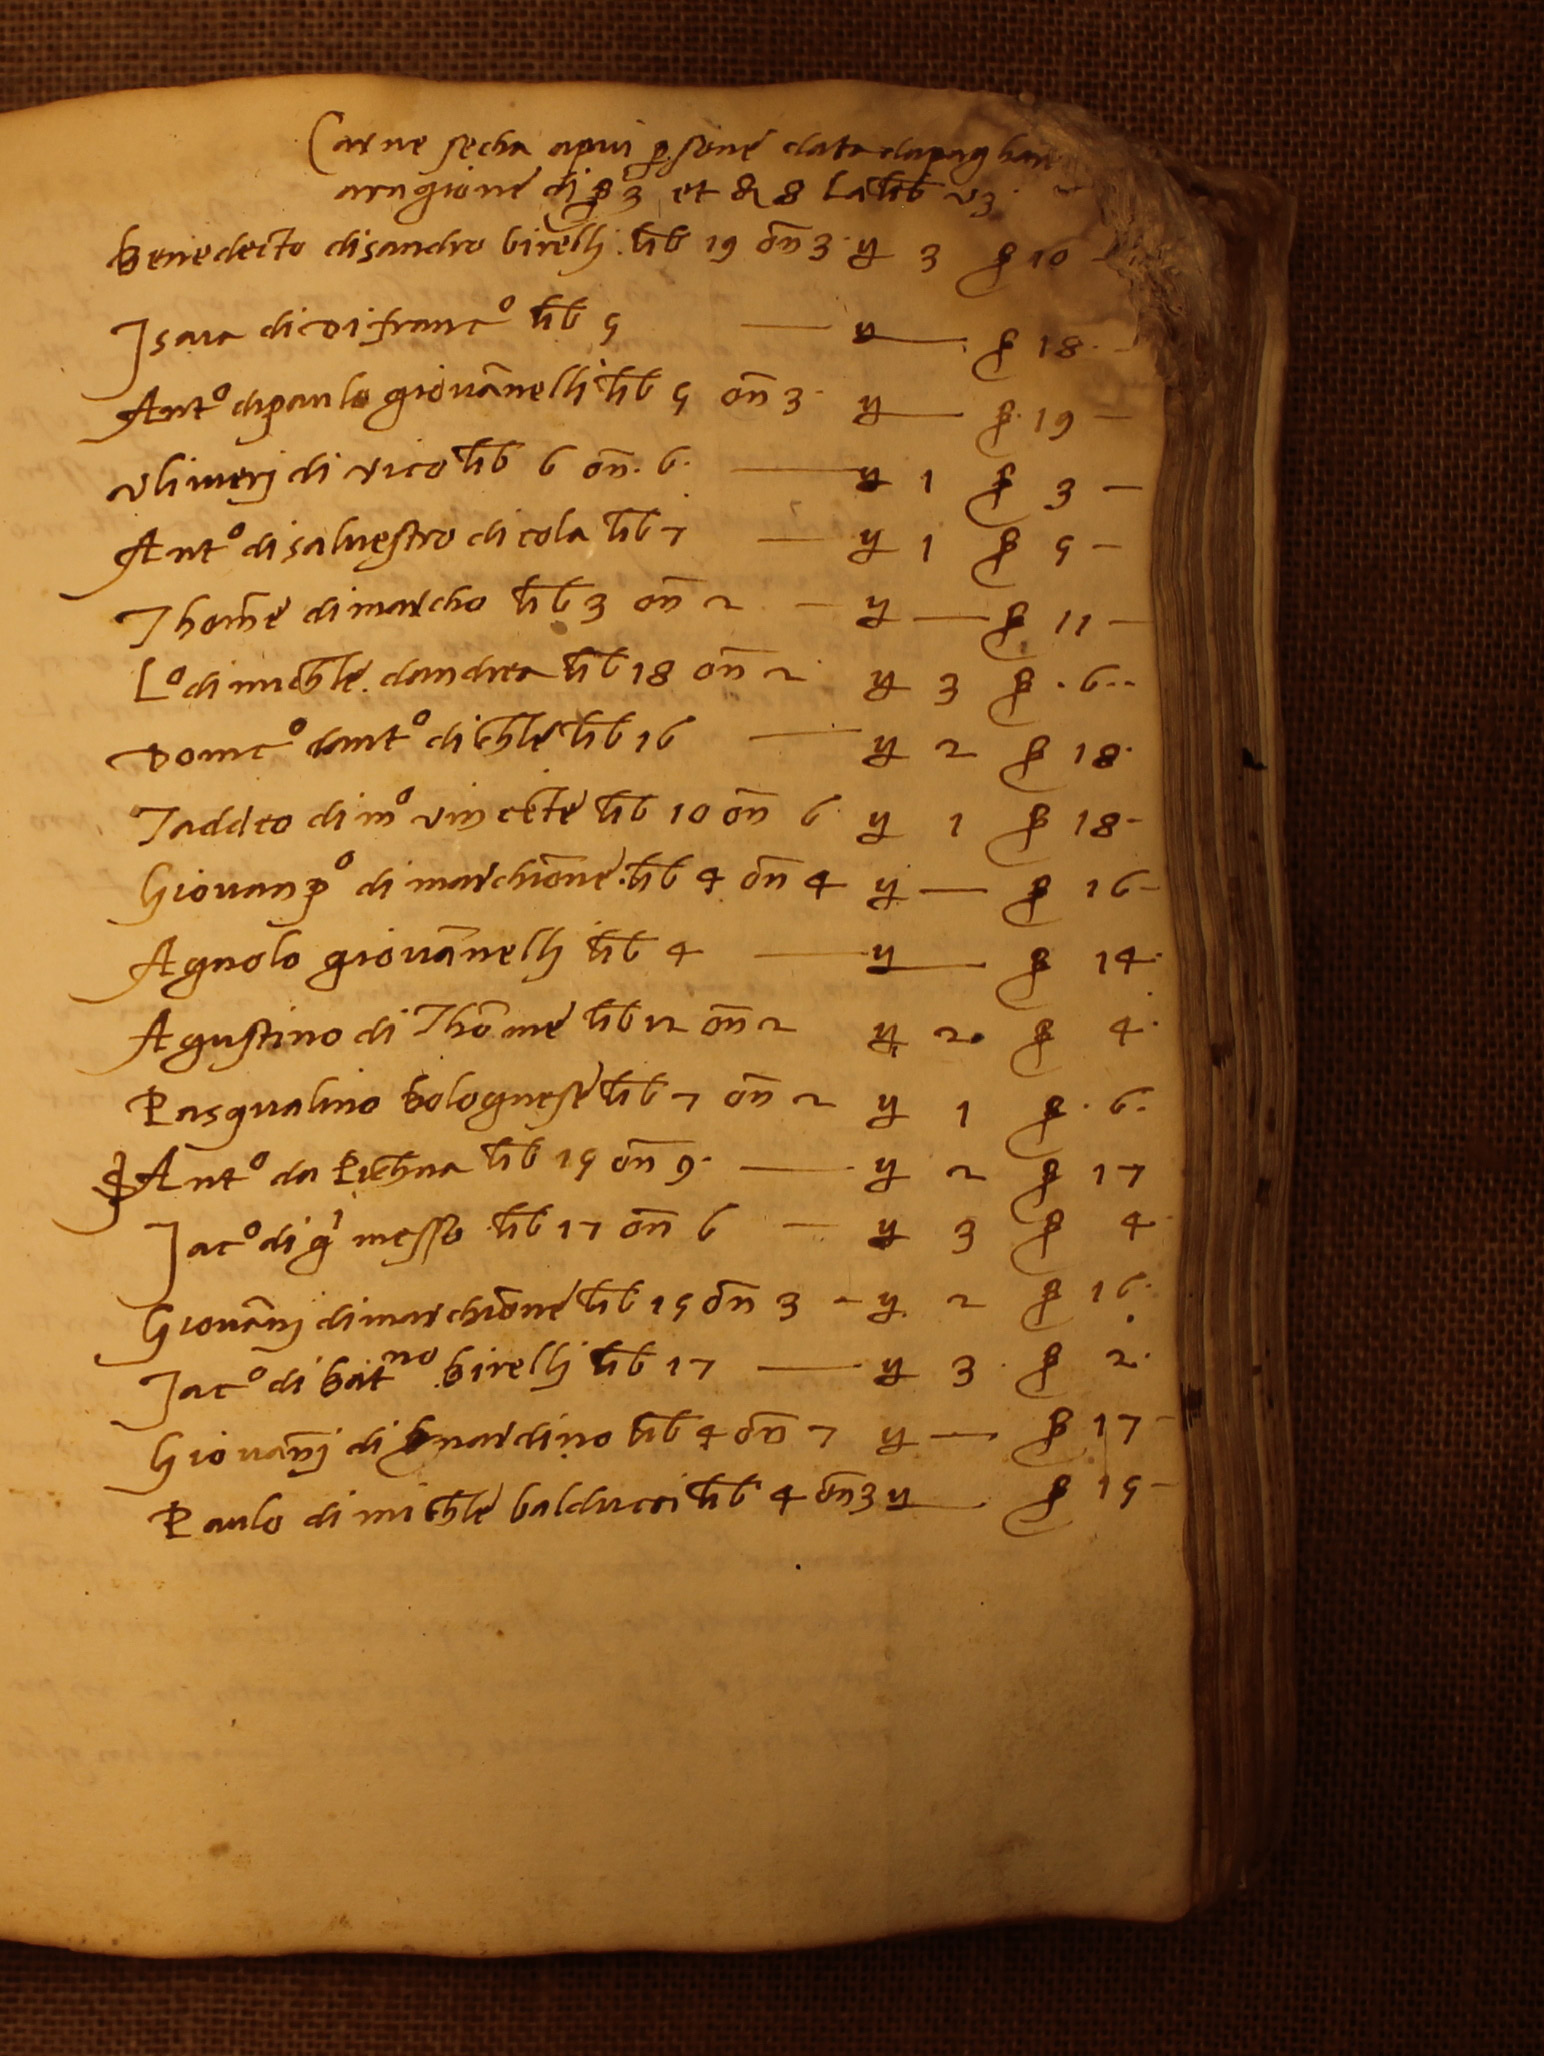 Carne secha a piu p̱sone data da pag han
a ragione di ꝑ 3 et ₰ 8 la lib vz.
Benedecto di sandro birelli lib 19 on̄ 3 ꝟ 3 ꝑ 10
Isaia di coi franc° lib 5 — ꝟ — ꝑ 18
Ant° di paulo giovānelli lib 5 on̄ 3 ꝟ — ꝑ 19 —
Uliveri di vico lib 6 on̄ 6 — ꝟ 1 ꝑ 3 —
Ant° di salvestro di cola lib 7 — ꝟ 1 ꝑ 5 —
Thom̄e di marcho lib 3 on̄ 2 — ꝟ — ꝑ 11 —
L° di mich̄le dandrea lib 18 on̄ 2 ꝟ 3 ꝑ 6
Domc° dant° di ch̄le lib 16 — ꝟ 2 ꝑ 18
Taddeo di m° vincēte lib 10 on̄ 6 ꝟ 1 ꝑ 18 -
Giovanp° di marchiōne lib 4 on̄ 4 ꝟ — ꝑ 16 -
Agnolo giovānelli lib 4 — ꝟ — ꝑ 14
Agustino di Thōme lib 12 on̄ 2 ꝟ 2 ꝑ 4
Pasqualino bolognese lib 7 on̄ 2 ꝟ 1 ꝑ 6
Ant° da Pich̄na lib 15 on̄ 9 — ꝟ 2 ꝑ 17
Jac° di gⁱ messo lib 17 on̄ 6 — ꝟ 3 ꝑ 4
Giovān̄j di marchiōne lib 15 on̄ 3 - ꝟ 2 ꝑ 16
Jac° di batⁿᵒ birelli lib 17 — ꝟ 3 ꝑ 2
Giovan̄j di b̄nardino lib 4 on̄ 7 ꝟ — ꝑ 17 -
Paulo di mich̄le balducci lib 4 on̄ 3 ꝟ — ꝑ 15 -